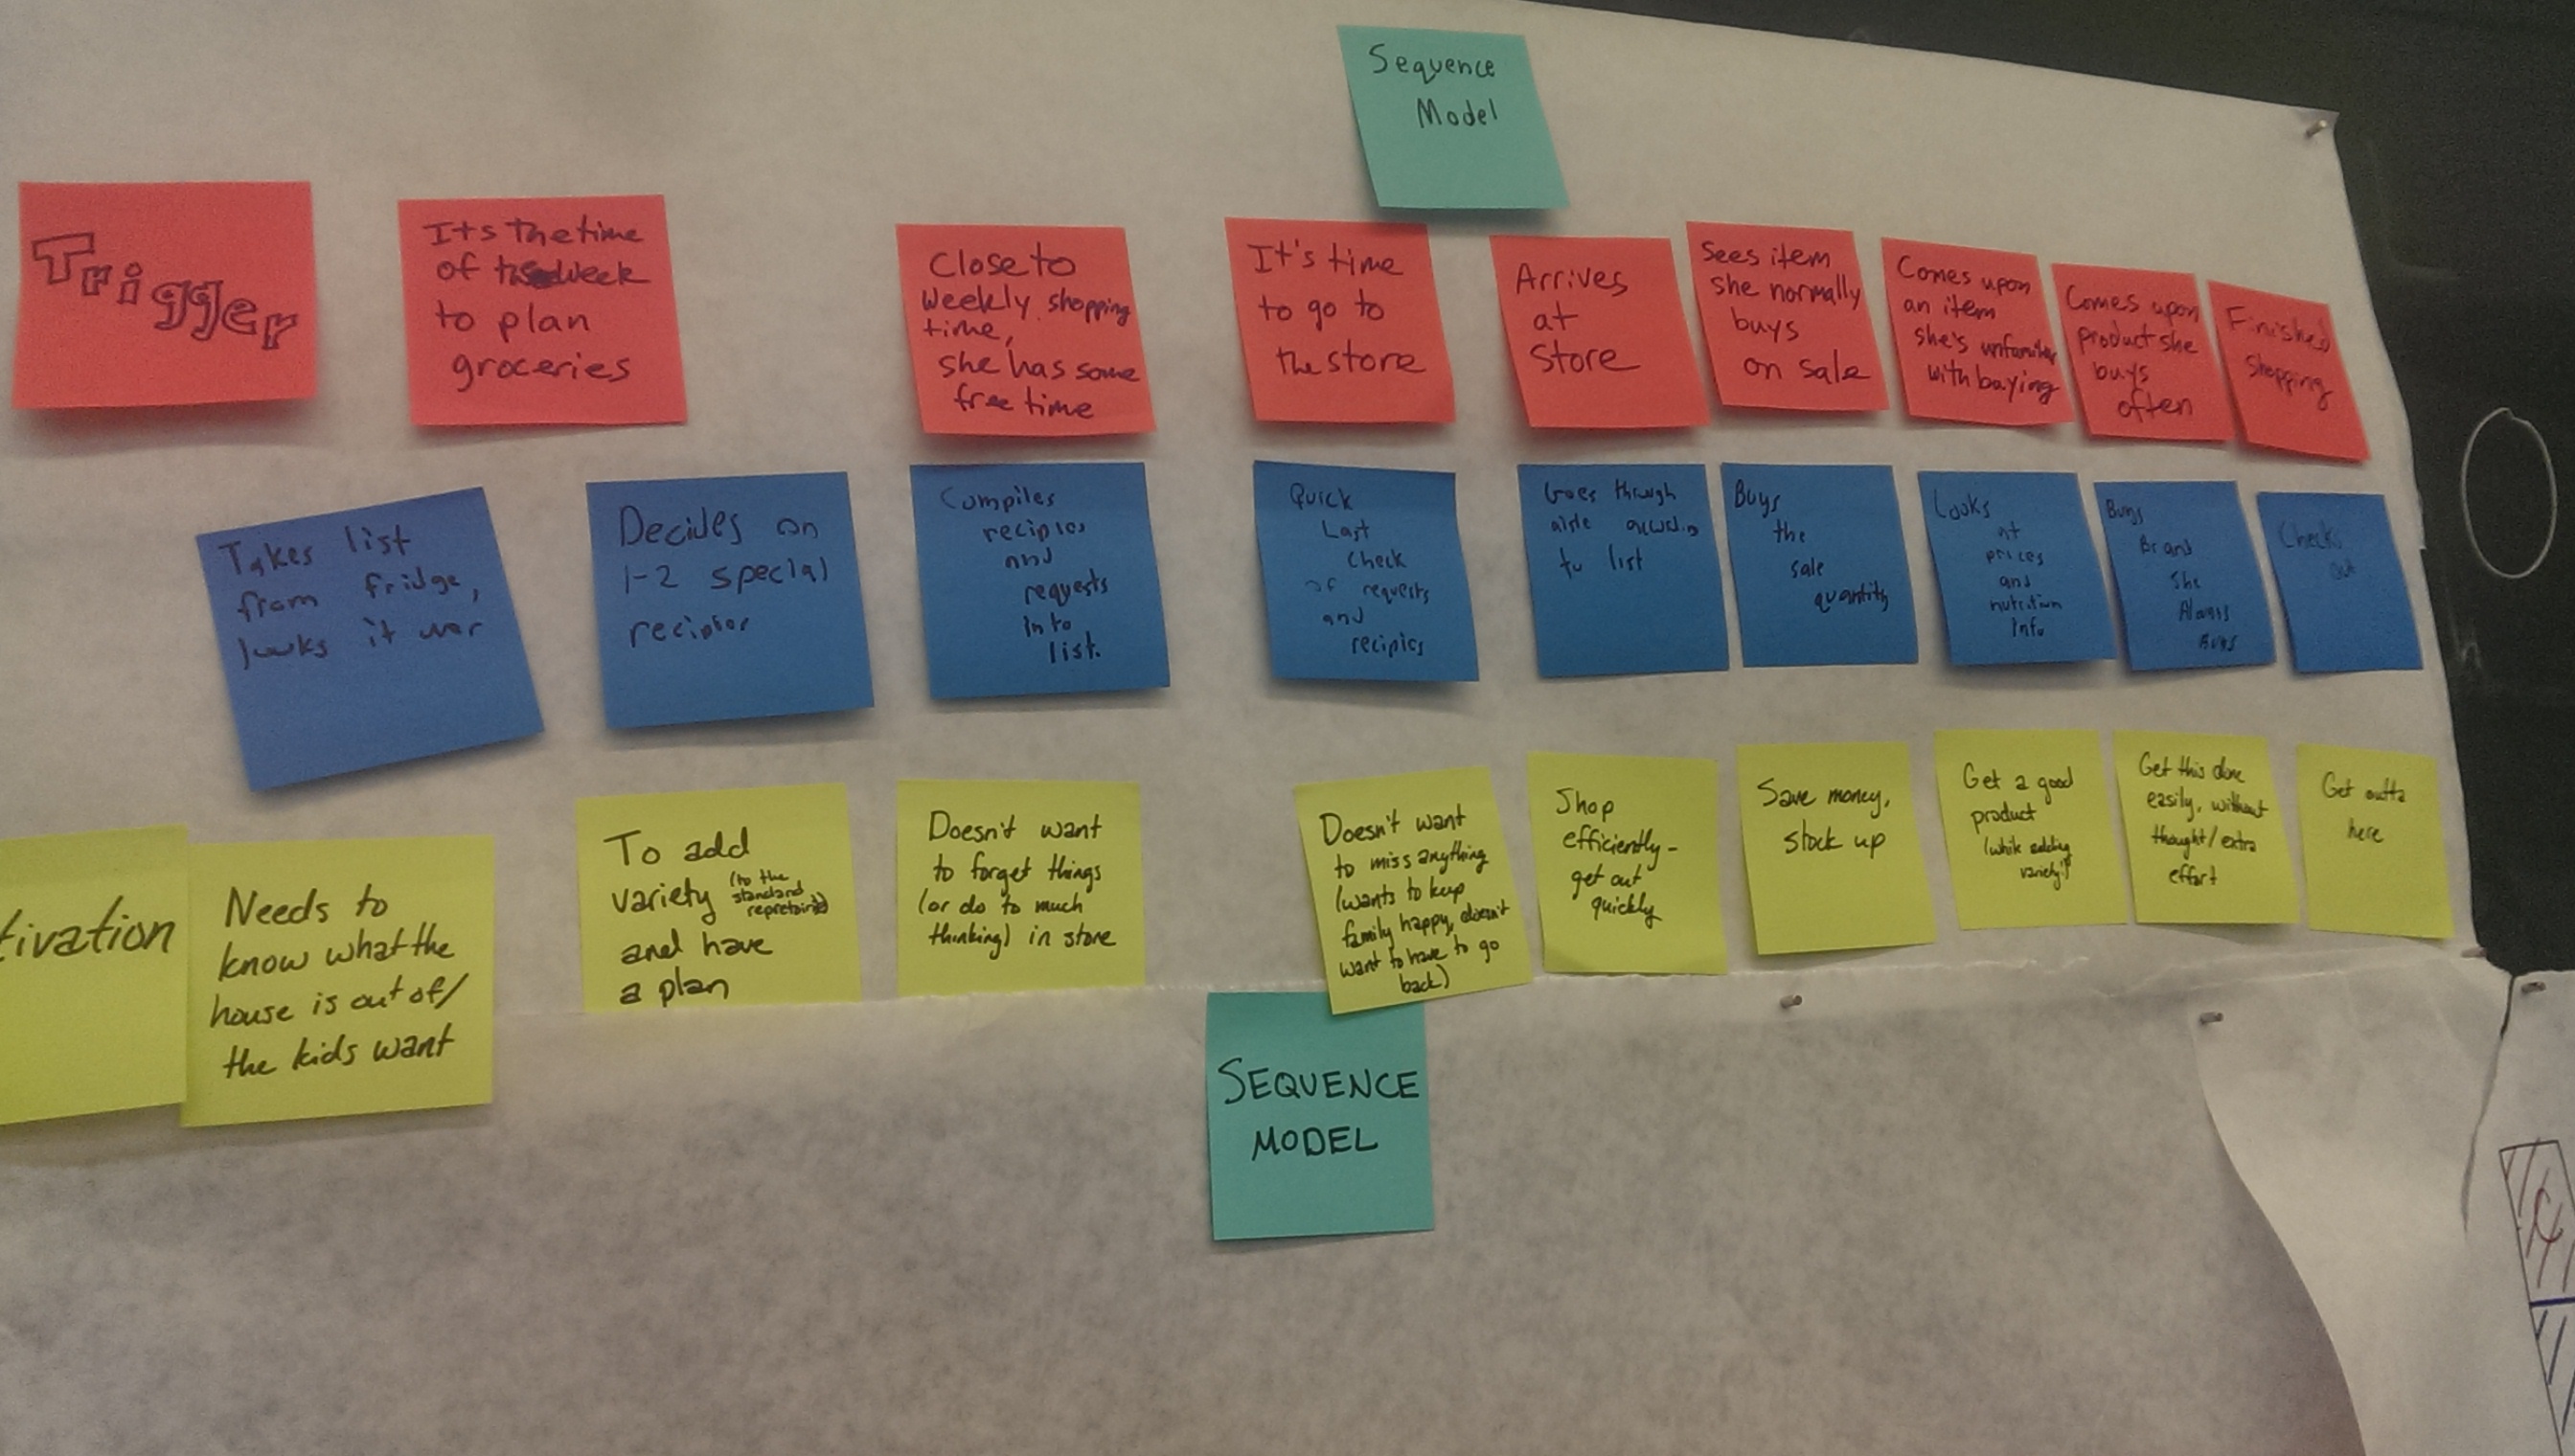 Sequence
Model
Trigger
Its the time
of the week
to plan
groceries
Close to
weekly shopping
time,
she has some
free time
It's time
to go to
the store
Arrives
at
store
Sees item
she normally
buys
on sale
Comes upon
an item
she's unfamiliar
with buying
Comes upon
product she
buys
often
Finished
Shopping
Takes list
from fridge,
looks it over
Decides on
1-2 special
Compiles
recipies
and
requests
into
list.
Quick
Last
check
of requests
and
recipies
Goes through
aisle
to list
Buys
the
sale
quantity
Looks
at
prices
and
nutrition
Info
Buys
Brand
She
Always
Buys
Checks
out
tivation
Needs to
know what the
house is out of/
the kids want
To add
variety (to the
standard
and have
a plan
Doesn't want
to forget things
(or do to much
thinking) in store
Doesn't want
to miss anything
(wants to keep
family happy, doesn't
want to have to go
back)
Shop
efficiently-
get out
quickly
Save money,
stock up
Get a good
product
(while adding
variety?)
Get this done
easily, without
thought/extra
effort
Get outta
here
SEQUENCE
MODEL